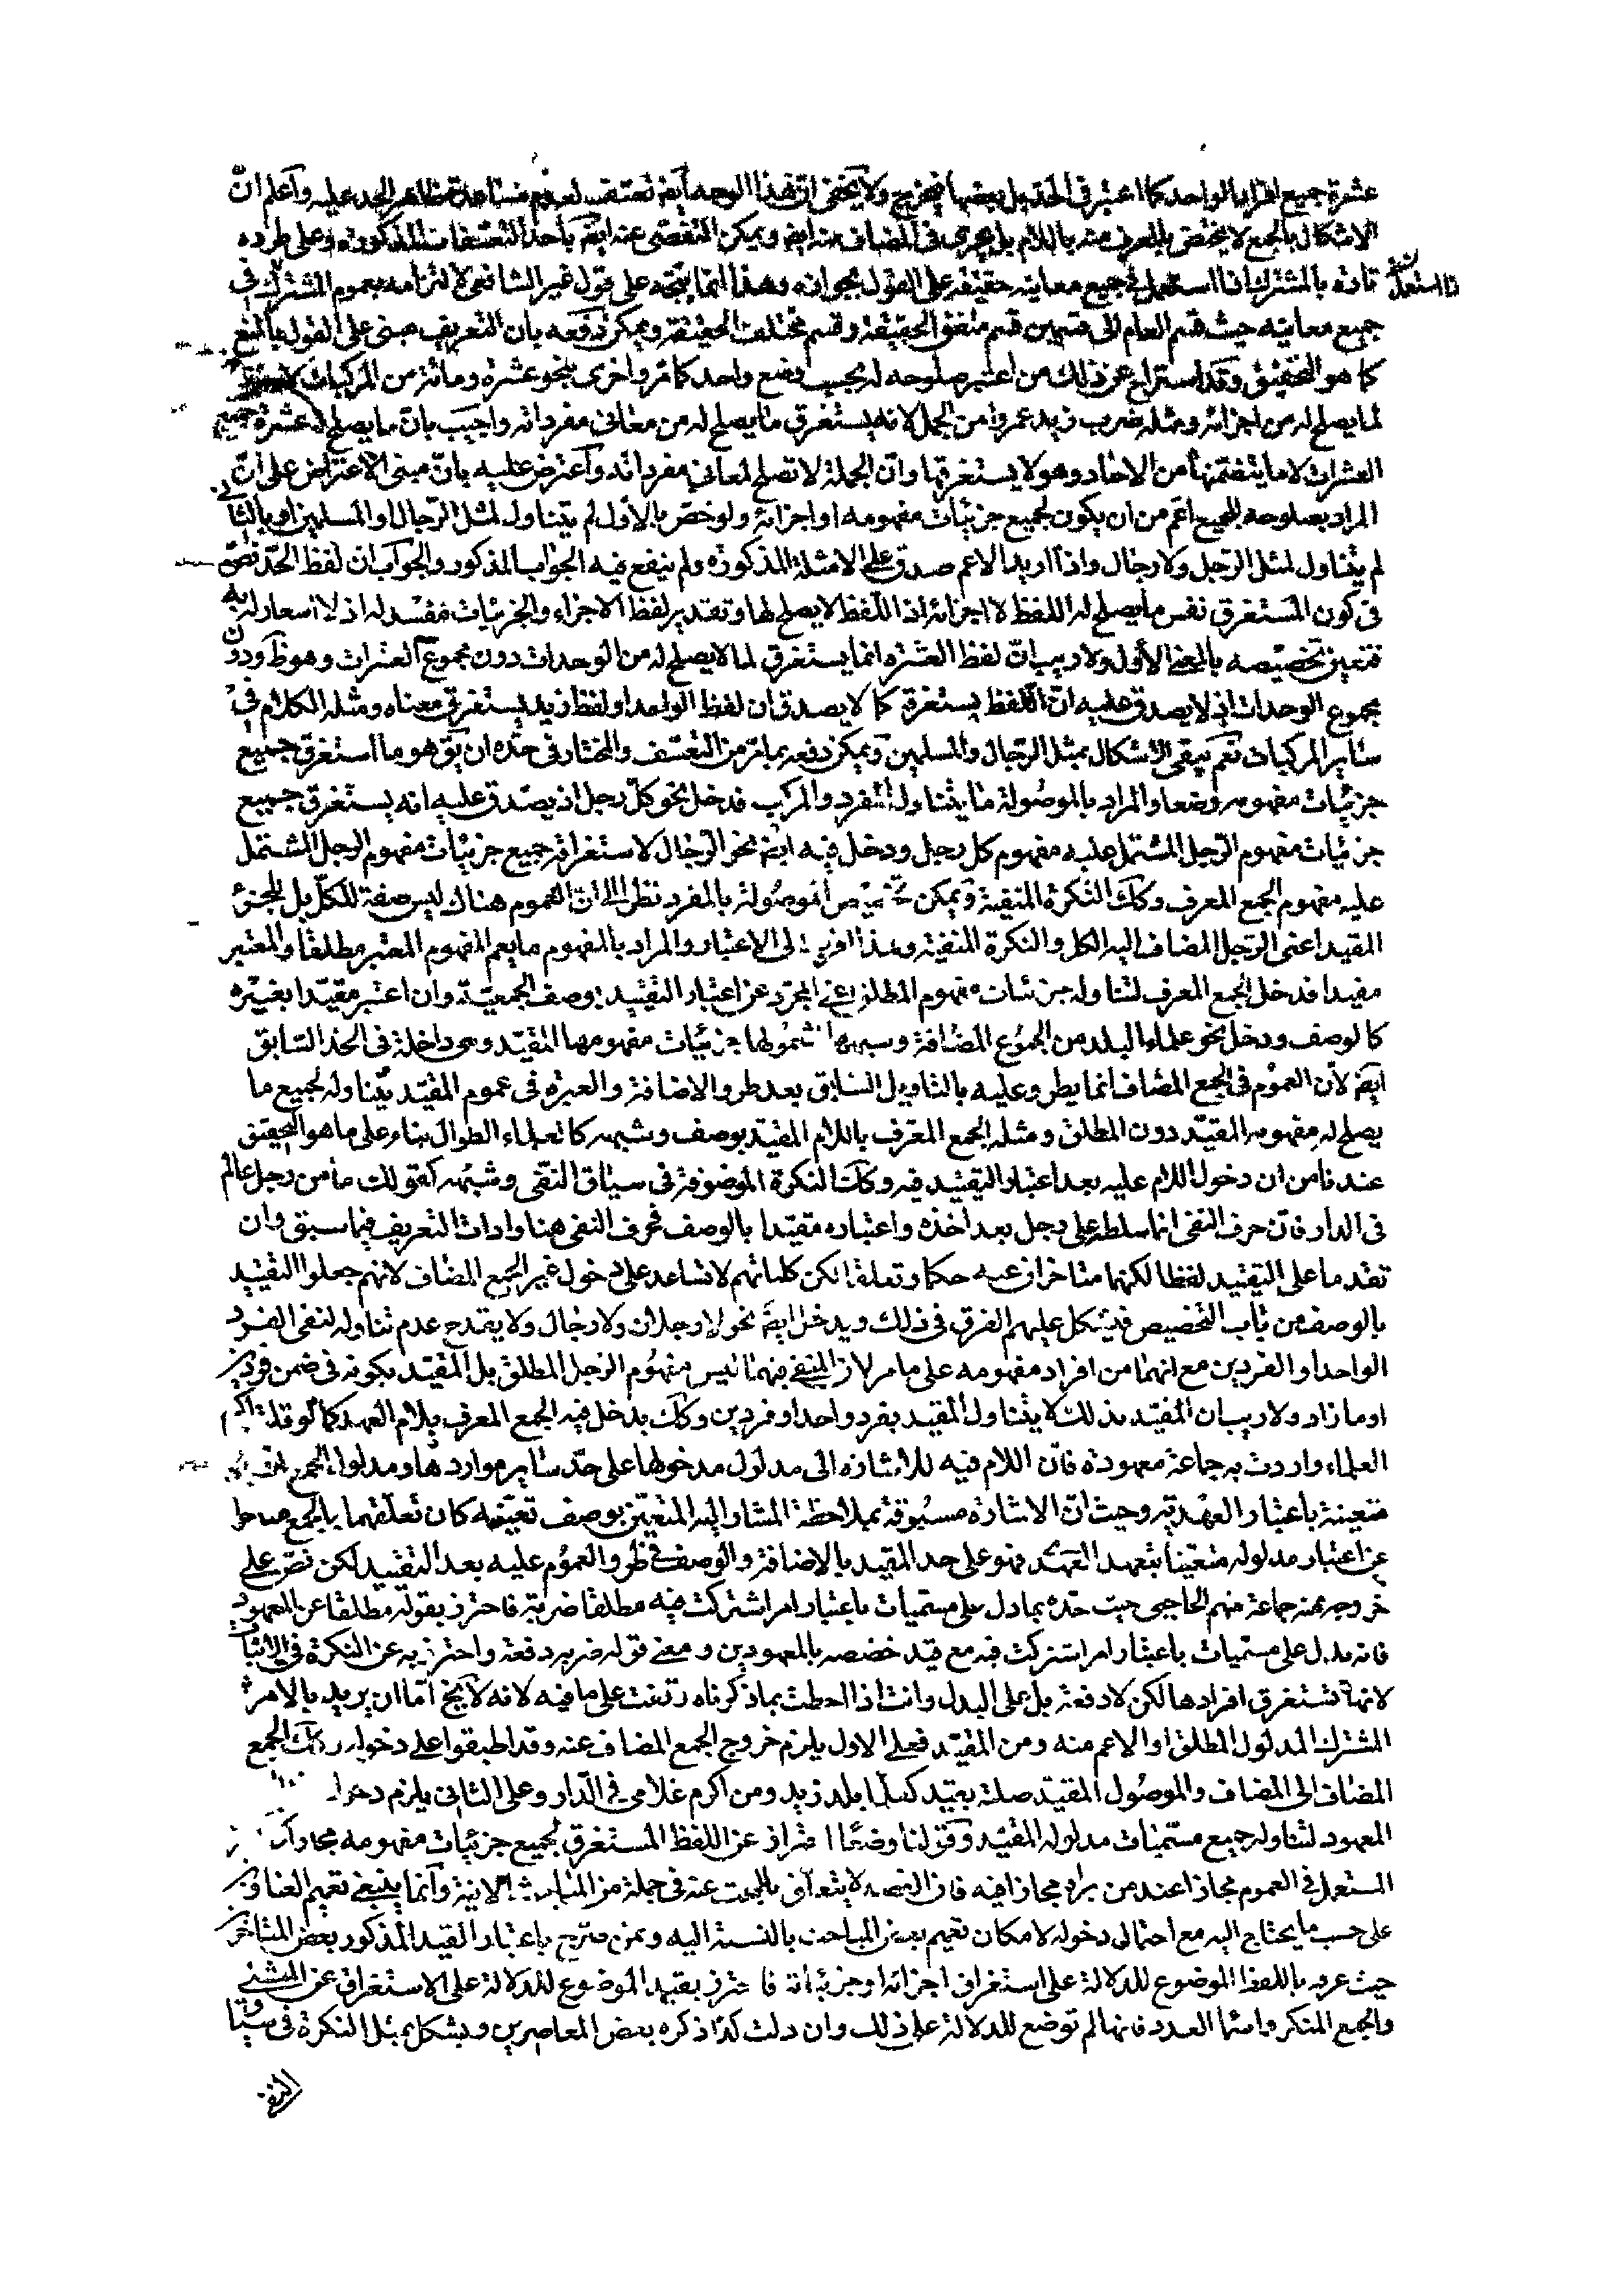 عشرة جميع افرادها لواحد كما اعتبر في الحد بل بعضها فيخرج ولا يخفى ان هذا الوجه ايضا تعسف لعدم مساعدة ظاهر الحد عليه واعلم ان
الاشكال بالجمع لا يختص بالمعرف منه باللام بل يجري في المضاف منه ايضا ويمكن التفصي عنه ايضا باحد التعسفات المذكورة وعلى طرده
تارة بالمشترك اذا استعمل في جميع معانيه حقيقة على القول بجوازه وهذا انما يتجه على قول غير الشافعي لالتزامه بعموم المشترك في
جميع معانيه حيث قسم العام الى قسمين قسم متفق الحقيقة وقسم مختلف الحقيقة ويمكن دفعه بان التعريف مبني على القول بالمنع
كما هو التحقيق وقد استراح عن ذلك من اعتبر صلوحه له بحسب وضع واحد كما مر واخرى بنحو عشرة ومائة من المركبات
لما يصلح له من اجزائه ومثله ضرب زيد عمروا من الجمل لانه يستغرق ما يصلح له من معاني مفرداته واجيب بان ما يصلح له عشرة جميع
العشرات لا ما يتضمنها من الاحاد وهو لا يستغرقها وان الجملة لا تصلح لمعاني مفرداته واعترض عليه بان مبنى الاعتراض على ان
المراد بصلوحه للجميع اعم من ان يكون لجميع جزئيات مفهومه او اجزائه ولو خص بالاول لم يتناول لمثل الرجال والمسلمين او بالثاني
لم يتناول لمثل الرجل ولا رجال واذا اريد الاعم صدق على الامثلة المذكورة ولم ينفع فيه الجواب المذكور والجواب ان لفظ الحد نص
في كون المستغرق نفس ما يصلح له اللفظ لا اجزائه اذ اللفظ لا يصلح لها وتقدير لفظ الاجزاء والجزئيات مفسد له اذ لا اشعار له به
فتعين تخصيصه بالمعنى الاول ولا ريب ان لفظ العشرة انما يستغرق لما لا يصلح له من الوحدات دون مجموع العشرات وهو ظ ودون
مجموع الوحدات اذ لا يصدق عليه ان اللفظ يستغرقه كما لا يصدق ان لفظ الواحد او لفظ زيد يستغرق معناه ومثله الكلام في
ساير المركبات نعم يبقى الاشكال بمثل الرجال والمسلمين ويمكن دفعه بما مر من التعسف والمختار في حده ان يق هو ما استغرق جميع
جزئيات مفهومه وضعا والمراد بالموصولة ما يتناول المفرد والمركب فدخل نحو كل رجل اذ يصدق عليه انه يستغرق جميع
جزئيات مفهوم الرجل المشتمل عليه مفهوم كل رجل ودخل فيه ايضا نحو الرجال لاستغراقه جميع جزئيات مفهوم الرجل المشتمل
عليه مفهوم الجمع المعرف وكك النكرة المنفية ويمكن تخصيص الموصولة بالمفرد نظرا الى ان العموم هناك ليس صفة للكل بل للجزئ
المقيد اعنى الرجل المضاف اليه الكل والنكرة المنفية وهذا اقرب الى الاعتبار والمراد بالمفهوم ما يعم المفهوم المعتبر مطلقا والمعتبر
مقيدا فدخل الجمع المعرف لتناوله جزئيات مفهوم المطلق اعني المجرد عن اعتبار التقييد بوصف الجمعية وان اعتبر مقيدا بغيره
كالوصف ودخل نحو علماء البلد من الجموع المضافة وشبهها لشمولها جزئيات مفهومها المقيد وهي داخلة في الحد السابق
ايضا لان العموم في الجمع المضاف انما يطرو عليه بالتاويل السابق بعد طرو الاضافة والعبرة في عموم المقيد بتناوله لجميع ما
يصلح له مفهومه المقيد دون المطلق ومثله الجمع المعرف باللام المقيد بوصف وشبهه كالعلماء الطوال بناء على ما هو التحقيق
عندنا من ان دخول اللام عليه بعد اعتبار التقييد فيه وكك النكرة الموصوفة في سياق النفي وشبهه كقولك ما من رجل عالم
في الدار فان حرف النفي انما سلط على رجل بعد اخذه واعتباره مقيدا بالوصف فحرف النفي هنا وادات التعريف فيما سبق وان
تقدما على التقييد لفظا لكنهما متاخران عنه حكما وتعلقا لكن كلماتهم لا تساعد على دخول غير الجمع المضاف لانهم جعلوا التقييد
بالوصف من باب التخصيص فيشكل عليهم الفرق في ذلك ويدخل ايضا نحو لا رجلان ولا رجال ولا يقدح عدم تناوله لنفي الفرد
الواحد او الفردين مع انهما من افراد مفهومه على ما مر لان المنفي فيهما ليس مفهوم الرجل المطلق بل المقيد بكونه في ضمن فردين
او ما زاد ولا ريب ان المقيد بذلك لا يتناول المقيد بفرد واحد او فردين وكك يدخل فيه الجمع المعرف بلام العهد كما لو قلت اكرم
العلماء واردت به جماعة معهودة فان اللام فيه للاشارة الى مدلول مدخولها على حد ساير مواردها ومدلول الجمع
متعينة باعتبار العهدية وحيث ان الاشارة مسبوقة بملاحظة المشار اليه المتعين بوصف تعينه كان تعلقهما بالجمع متاخرا
عن اعتبار مدلوله متعينا بتعهد العهد فهو على حد المقيد بالاضافة والوصف في طرو العموم عليه بعد التقييد لكن نص على
خروجه منه جماعة منهم الحاجبي حيث حده بما دل على مسميات باعتبار امر اشتركت فيه مطلقا ضربة فاحترز بقوله مطلقا عن المعهود
فانه يدل على مسميات باعتبار امر اشتركت فيه مع قيد خصصه بالمعهودين ومعنى قوله ضربة دفعة واحترز به عن النكرة في الاثبات
لانها تستغرق افرادها لكن لا دفعة بل على البدل وانت اذا احطت بما ذكرناه وقفت على ما فيه لانه لا يخ اما ان يريد بالامر
المشترك المدلول المطلق او الاعم منه ومن المقيد فعلى الاول يلزم خروج الجمع المضاف عنه وقد اطبقوا على دخوله وكك الجمع
المضاف الى المضاف والموصول المقيد صلته بقيد كعلماء بلد زيد ومن اكرم غلامي في الدار وعلى الثاني يلزم دخول
المعهود لتناوله جميع مسميات مدلوله المقيد وقولنا وضعا احتراز عن اللفظ المستغرق لجميع جزئيات مفهومه مجازا
المستعمل في العموم مجازا عند من يراه مجازا فيه فان القصد لا يتعلق بالبحث عنه في جملة من المباحث الاتية وانما ينبغي تعميم العناوين
على حسب ما يحتاج اليه مع احتمال دخوله لامكان تعميم بعض المباحث بالنسبة اليه وممن صرح باعتبار القيد المذكور بعض المتاخرين
حيث عرفه باللفظ الموضوع للدلالة على استغراق اجزائه او جزئياته فاحترز بقيد الموضوع للدلالة على الاستغراق عن المثنى
والجمع المنكر واسماء العدد فانها لم توضع للدلالة على ذلك وان دلت كذا ذكره بعض المعاصرين ويشكل بمثل النكرة في سياق
النفي